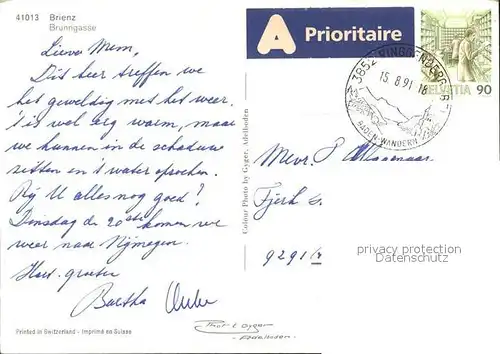 41013 Brienz
Brunngasse
A Prioritaire
HELVETIA 90
3852 RINGGENBERG BE
15.8.91-18
BADEN-WANDERN
Lieve Mem,
Dit keer treffen we
het geweldig met het weer.
't is wel erg warm, maar
we kunnen in de schaduw
zitten en 't water opzoeken.
Bij U alles nog goed?
Dinsdag de 20ste komen we
weer naar Nijmegen.
Hart. groeten
Bartha
Mevr. P
9291
Colour Photo by Gyger, Adelboden
privacy protection
Datenschutz
Printed in Switzerland - Imprimé en Suisse
Phot. E. Gyger
Adelboden